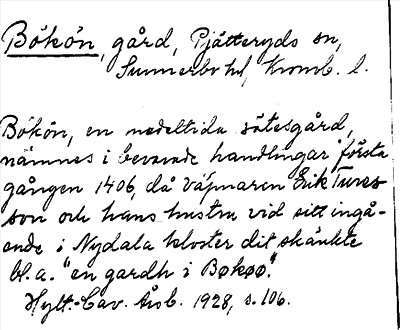 Bökön, gård, Pjätteryds sn,
Sunnerbo hd, Kronob. l.
Bökön, en medeltida sätesgård,
nämnes i bevarade handlingar första
gången 1406, då väpnaren Erik Tures-
son och hans hustru vid sitt ingå-
ende i Nydala kloster dit skänkte
bl. a. "en gardh i Bøkøø".
Hylt.-Cav. Årsb. 1928, s. 106.